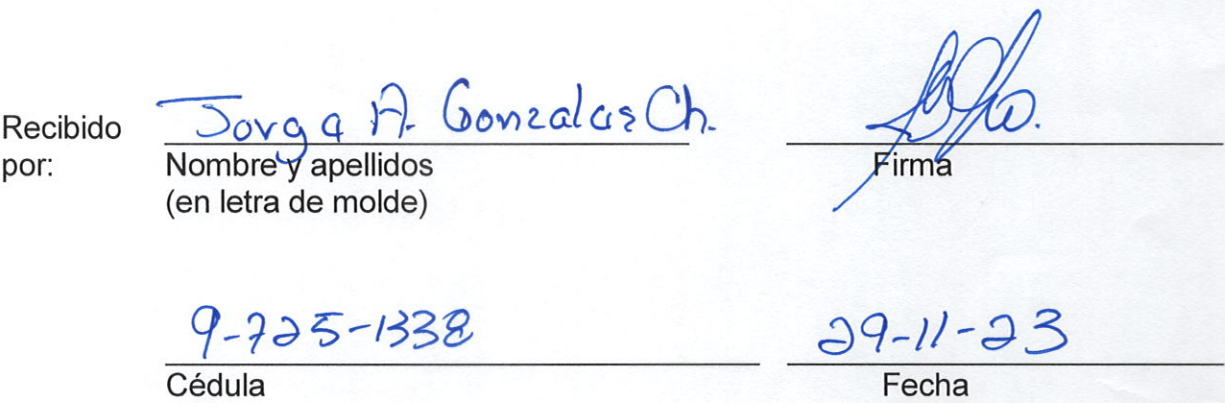 Recibido por:
Jorge A. Gonzalez Ch.
Nombre y apellidos
(en letra de molde)
Firma
9-725-1338
29-11-23
Cédula
Fecha